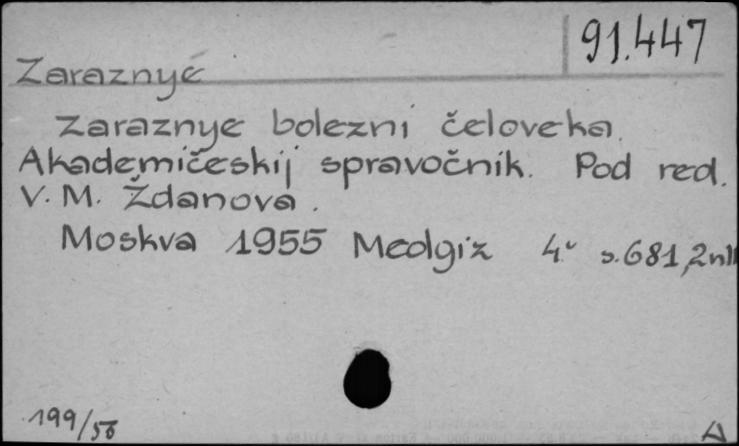 91.447
Zaraznye
Zaraznye bolezni čeloveka.
Akademičeskij spravočnik. Pod red.
V. M. Ždanova.
Moskva 1955 Medgiz 4° s. 681, 2 nlb
199/56
A